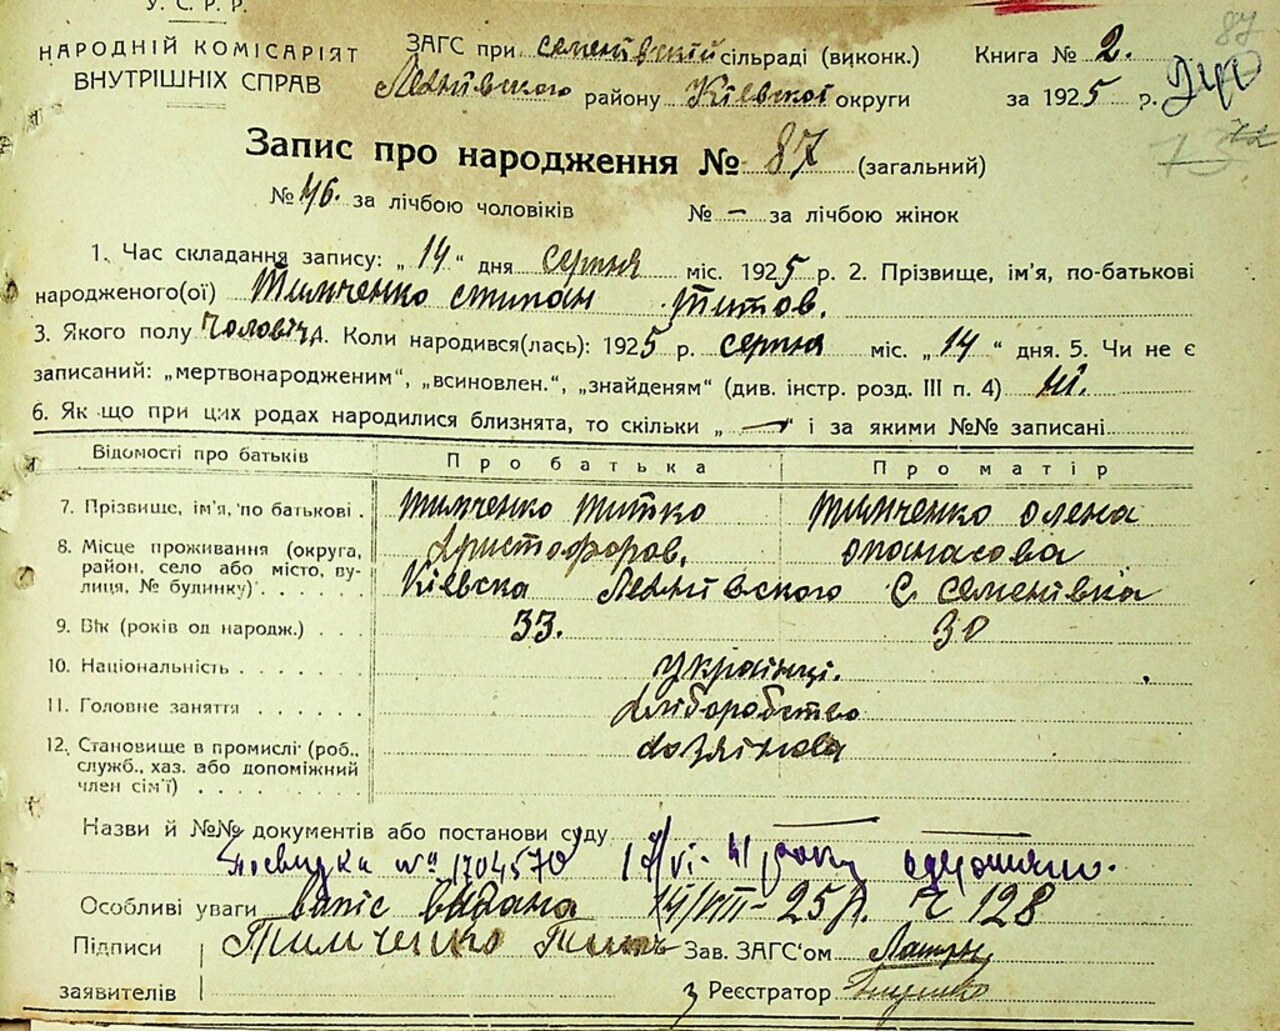 У. С. Р. Р.
НАРОДНІЙ КОМІСАРІЯТ
ВНУТРІШНІХ СПРАВ
ЗАГС при семенівській сільраді (виконк.)
района району Київської округи
Книга № 2.
за 1925 р.
87
Запис про народження № 87 (загальний)
№ 46. за лічбою чоловіків № – за лічбою жінок
1. Час складання запису: „ 14 “ дня серпня міс. 1925 р. 2. Прізвище, ім'я, по-батькові
народженого(ої) Тимченко степан титов.
3. Якого полу Чоловіч 4. Коли народився(лась): 1925 р. серпня міс. „ 14 “ дня. 5. Чи не є
записаний: „мертвонародженим“, „всиновлен.“, „знайденям“ (див. інстр. розд. III п. 4) ні.
6. Як що при цих родах народилися близнята, то скільки „ — “ і за якими №№ записані
Відомості про батьків Про батька Про матір
7. Прізвище, ім'я, по батькові . тимченко Титко тимченко олена
8. Місце проживання (округа, Христофоров. опанасова
район, село або місто, ву-
лиця, № будинку) Київска С. семенівка
9. Вік (років од народж.) . . . 33. 30
10. Національність . . . . . . . українці.
11. Головне заняття . . . . . . хліборобство
12. Становище в промислі (роб., хозяінова
служб., хаз. або допоміжний
член сім'ї) . . . . . . . . .
Назви й №№ документів або постанови суду
№ 1704570 17/VI- 41 року
Особливі уваги вапіс видана 14/VIII-25р. Ч 128
Підписи Тимченко Зав. ЗАГС'ом
заявителів Реєстратор